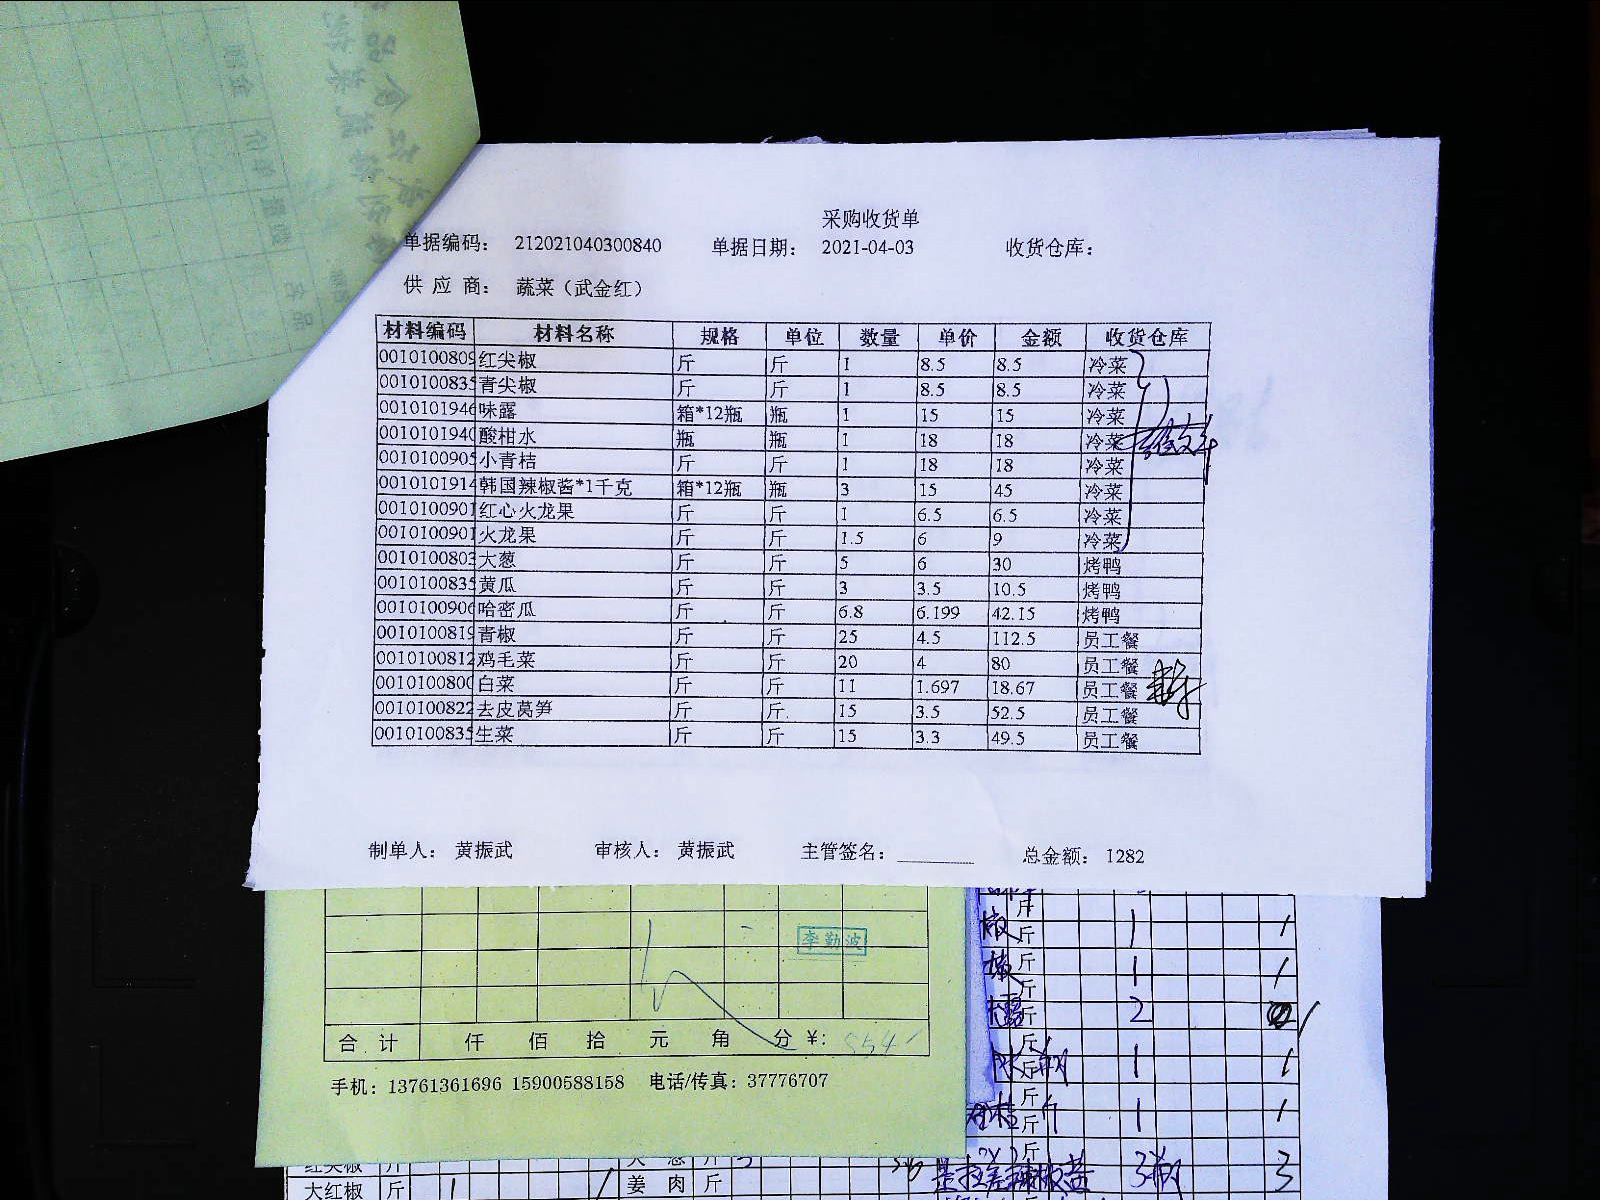 采购收货单
单据编码： 212021040300840 单据日期： 2021-04-03 收货仓库：
供 应 商： 蔬菜（武金红）
材料编码 材料名称 规格 单位 数量 单价 金额 收货仓库
0010100809 红尖椒 斤 斤 1 8.5 8.5 冷菜
0010100835 青尖椒 斤 斤 1 8.5 8.5 冷菜
0010101946 味露 箱*12瓶 瓶 1 15 15 冷菜
0010101940 酸柑水 瓶 瓶 1 18 18 冷菜
0010100905 小青桔 斤 斤 1 18 18 冷菜
0010101914 韩国辣椒酱*1千克 箱*12瓶 瓶 3 15 45 冷菜
0010100901 红心火龙果 斤 斤 1 6.5 6.5 冷菜
0010100901 火龙果 斤 斤 1.5 6 9 冷菜
0010100803 大葱 斤 斤 5 6 30 烤鸭
0010100835 黄瓜 斤 斤 3 3.5 10.5 烤鸭
0010100906 哈密瓜 斤 斤 6.8 6.199 42.15 烤鸭
0010100819 青椒 斤 斤 25 4.5 112.5 员工餐
0010100812 鸡毛菜 斤 斤 20 4 80 员工餐
0010100800 白菜 斤 斤 11 1.697 18.67 员工餐
0010100822 去皮莴笋 斤 斤 15 3.5 52.5 员工餐
0010100835 生菜 斤 斤 15 3.3 49.5 员工餐
制单人： 黄振武 审核人： 黄振武 主管签名： 总金额： 1282
李勤波
合 计 仟 佰 拾 元 角 分 ¥:
手机：13761361696 15900588158 电话/传真：37776707
椒 斤 1 1
斤 1 1
斤 2
斤 1 1
斤 1 1
斤 3 3
红尖椒 斤 大 葱 斤
大红椒 斤 1 姜 肉 斤